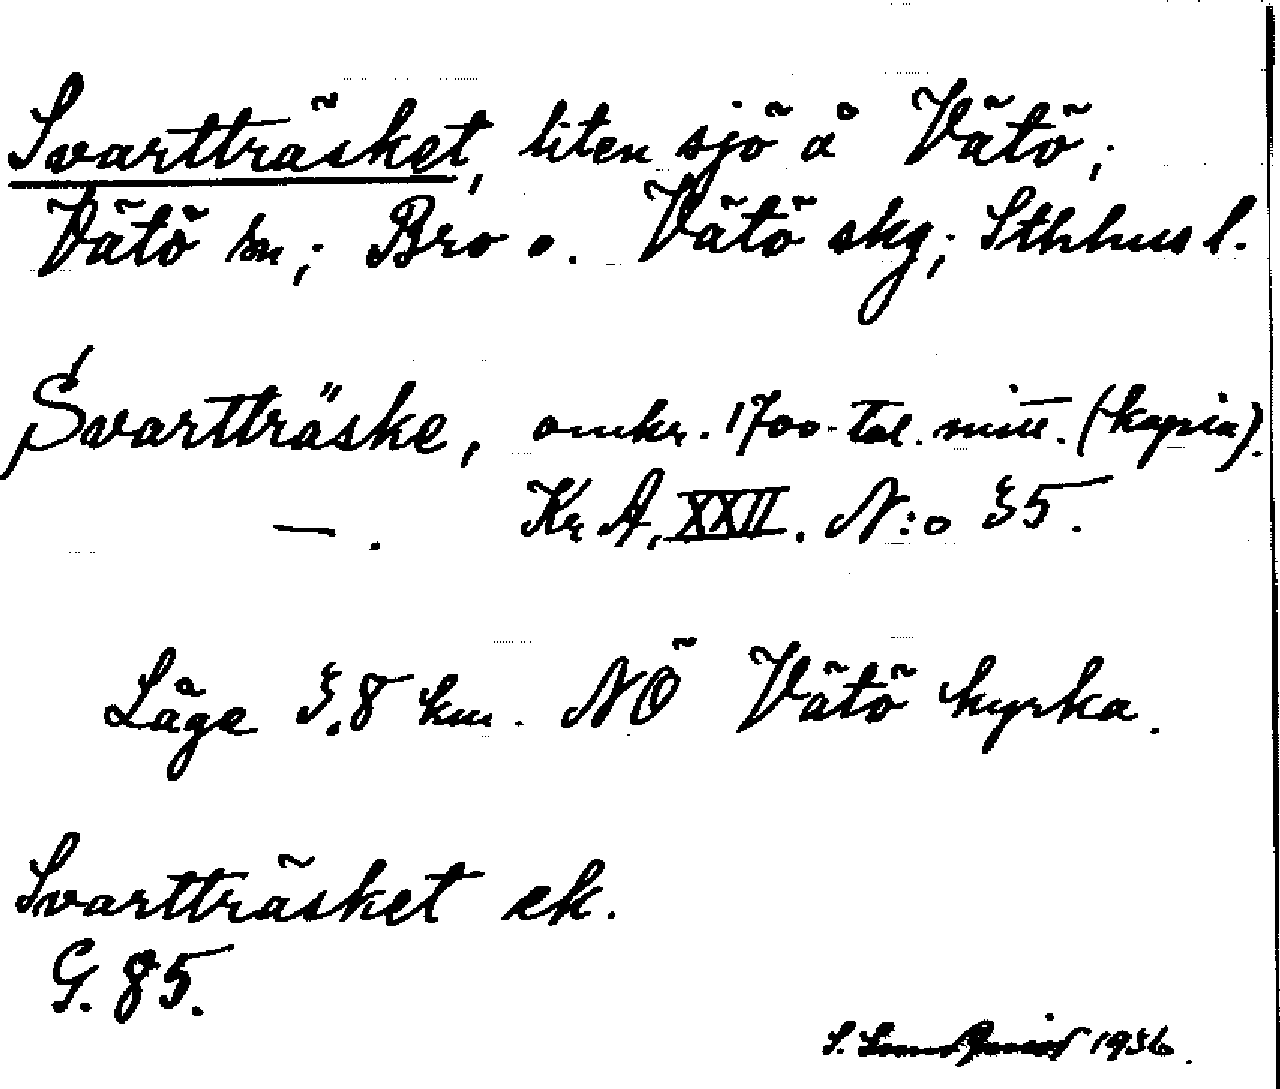 Svartträsket, liten sjö å Vätö;
Vätö sn; Bro o. Vätö skg; Sthhus l.
Svartträske, omkr. 1700-tal. mitt. (kopia).
—. Kr A, XXII. N:o 35.
Läge 3.8 km. NÖ Vätö kyrka.
Svartträsket ek.
G. 85.
S. 1936.